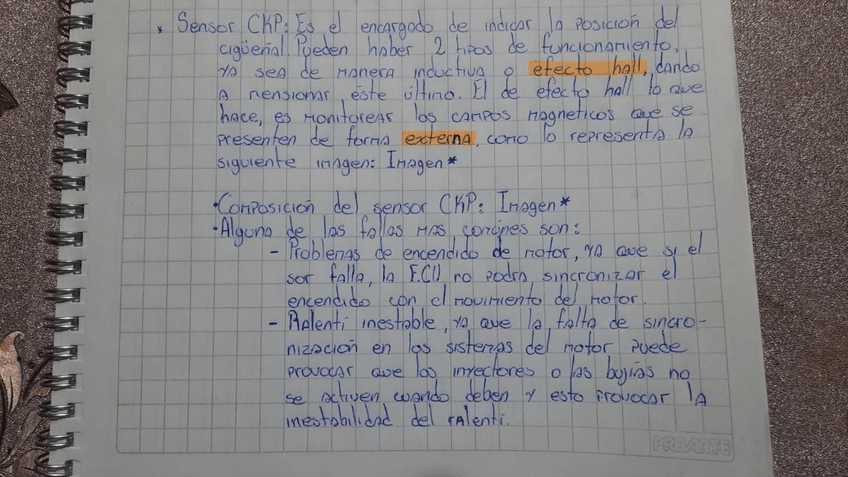 • Sensor CKP: Es el encargado de indicar la posición del
cigüeñal. Pueden haber 2 tipos de funcionamiento,
ya sea de manera inductiva o efecto hall, dando
a mensionar éste último. El de efecto hall lo que
hace, es monitorear los campos magneticos que se
presenten de forma externa, como lo representa la
siguiente imagen: Imagen*
•Composición del sensor CKP: Imagen*
•Alguna de las fallas mas comúnes son:
- Problemas de encendido de motor, ya que si el
sor falla, la ECU no podra sincronizar el
encendido con el movimiento del motor.
- Ralenti inestable, ya que la falta de sincro-
nización en los sistemas del motor puede
provocar que los inyectores o las bujías no
se activen cuando deben y esto provocar la
inestabilidad del ralenti.
PROARTE